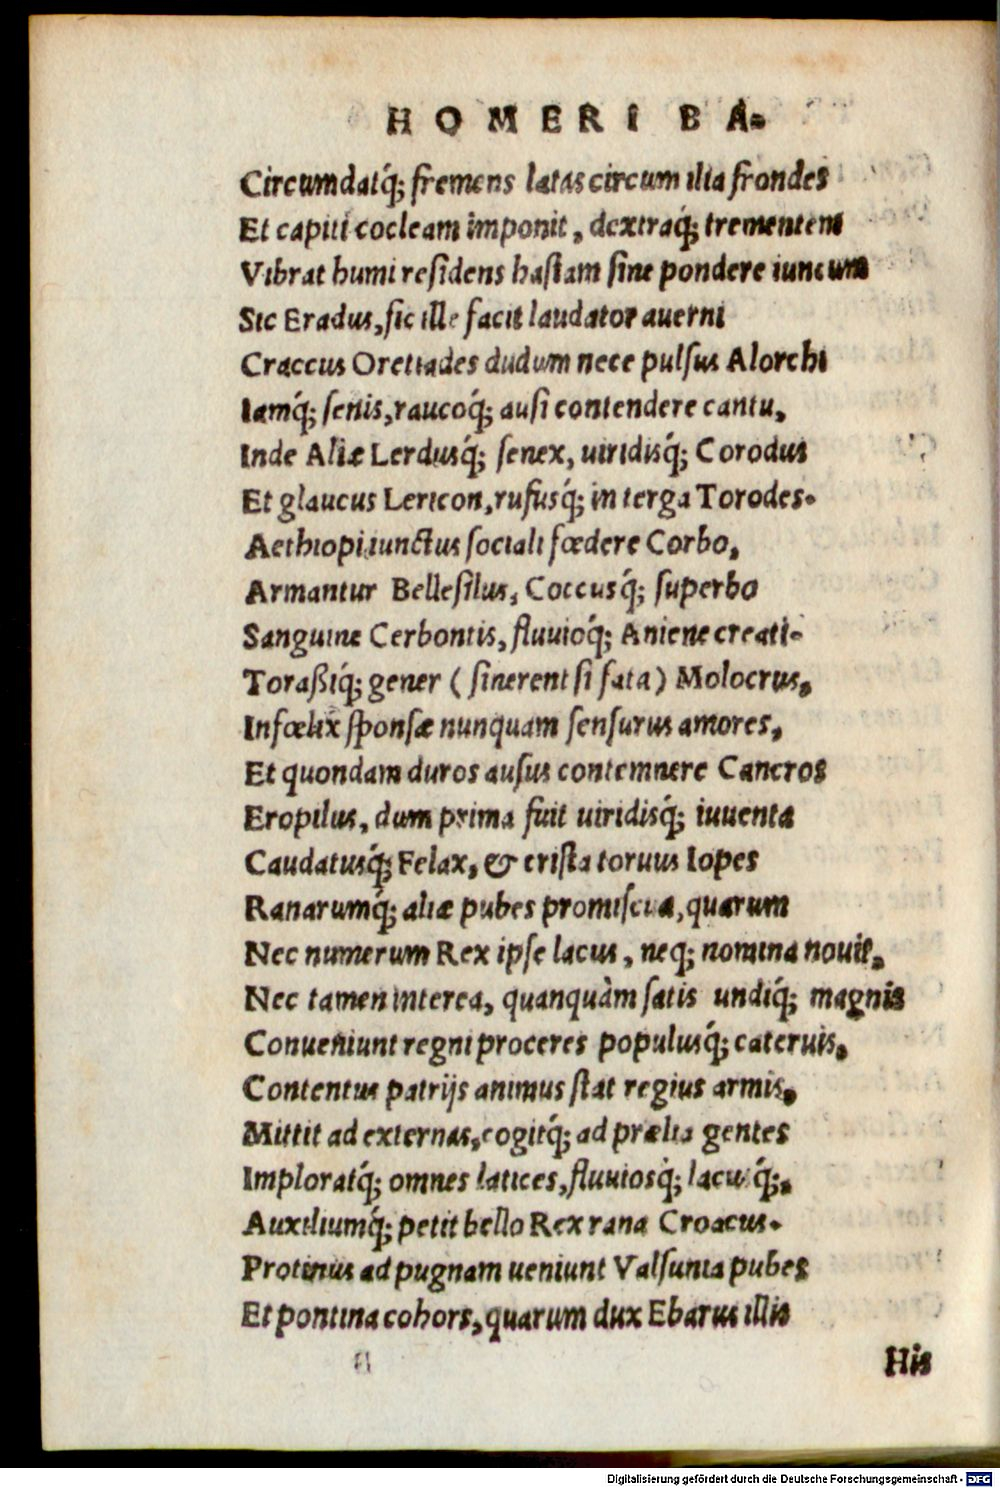 HOMERI BA-
Circumdatq́; fremens latas circum ilia frondes
Et capiti cocleam imponit, dextraq́; trementem
Vibrat humi residens hastam sine pondere iuncum
Sic Eradus, sic ille facit laudator auerni
Craccus Oretiades dudum nece pulsus Alorchi
Iamq́; senis, raucoq́; ausi contendere cantu,
Inde Aliæ Lerdusq́; senex, uiridisq́; Corodus
Et glaucus Lericon, rufusq́; in terga Torodes.
Aethiopi iunctus sociali fœdere Corbo,
Armantur Bellesilus, Coccusq́; superbo
Sanguine Cerbontis, fluuioq́; Aniene creati.
Toraßiq́; gener (sinerent si fata) Molocrus,
Infœlix sponsæ nunquam sensurus amores,
Et quondam duros ausus contemnere Cancros
Eropilus, dum prima fuit uiridisq́; iuuenta
Caudatusq́; Felax, & crista toruus Iopes
Ranarumq́; aliæ pubes promiscua, quarum
Nec numerum Rex ipse lacus, neq; nomina nouit,
Nec tamen interea, quanquàm satis undiq́; magnis
Conueniunt regni proceres populusq́; cateruis,
Contentus patrijs animus stat regius armis,
Mittit ad externas, cogitq́; ad prælia gentes
Imploratq́; omnes latices, fluuiosq́; lacusq́;,
Auxiliumq́; petit bello Rex rana Croacus.
Protinus ad pugnam ueniunt Valsunta pubes
Et pontina cohors, quarum dux Ebarus illis
His
Digitalisierung gefördert durch die Deutsche Forschungsgemeinschaft - DFG